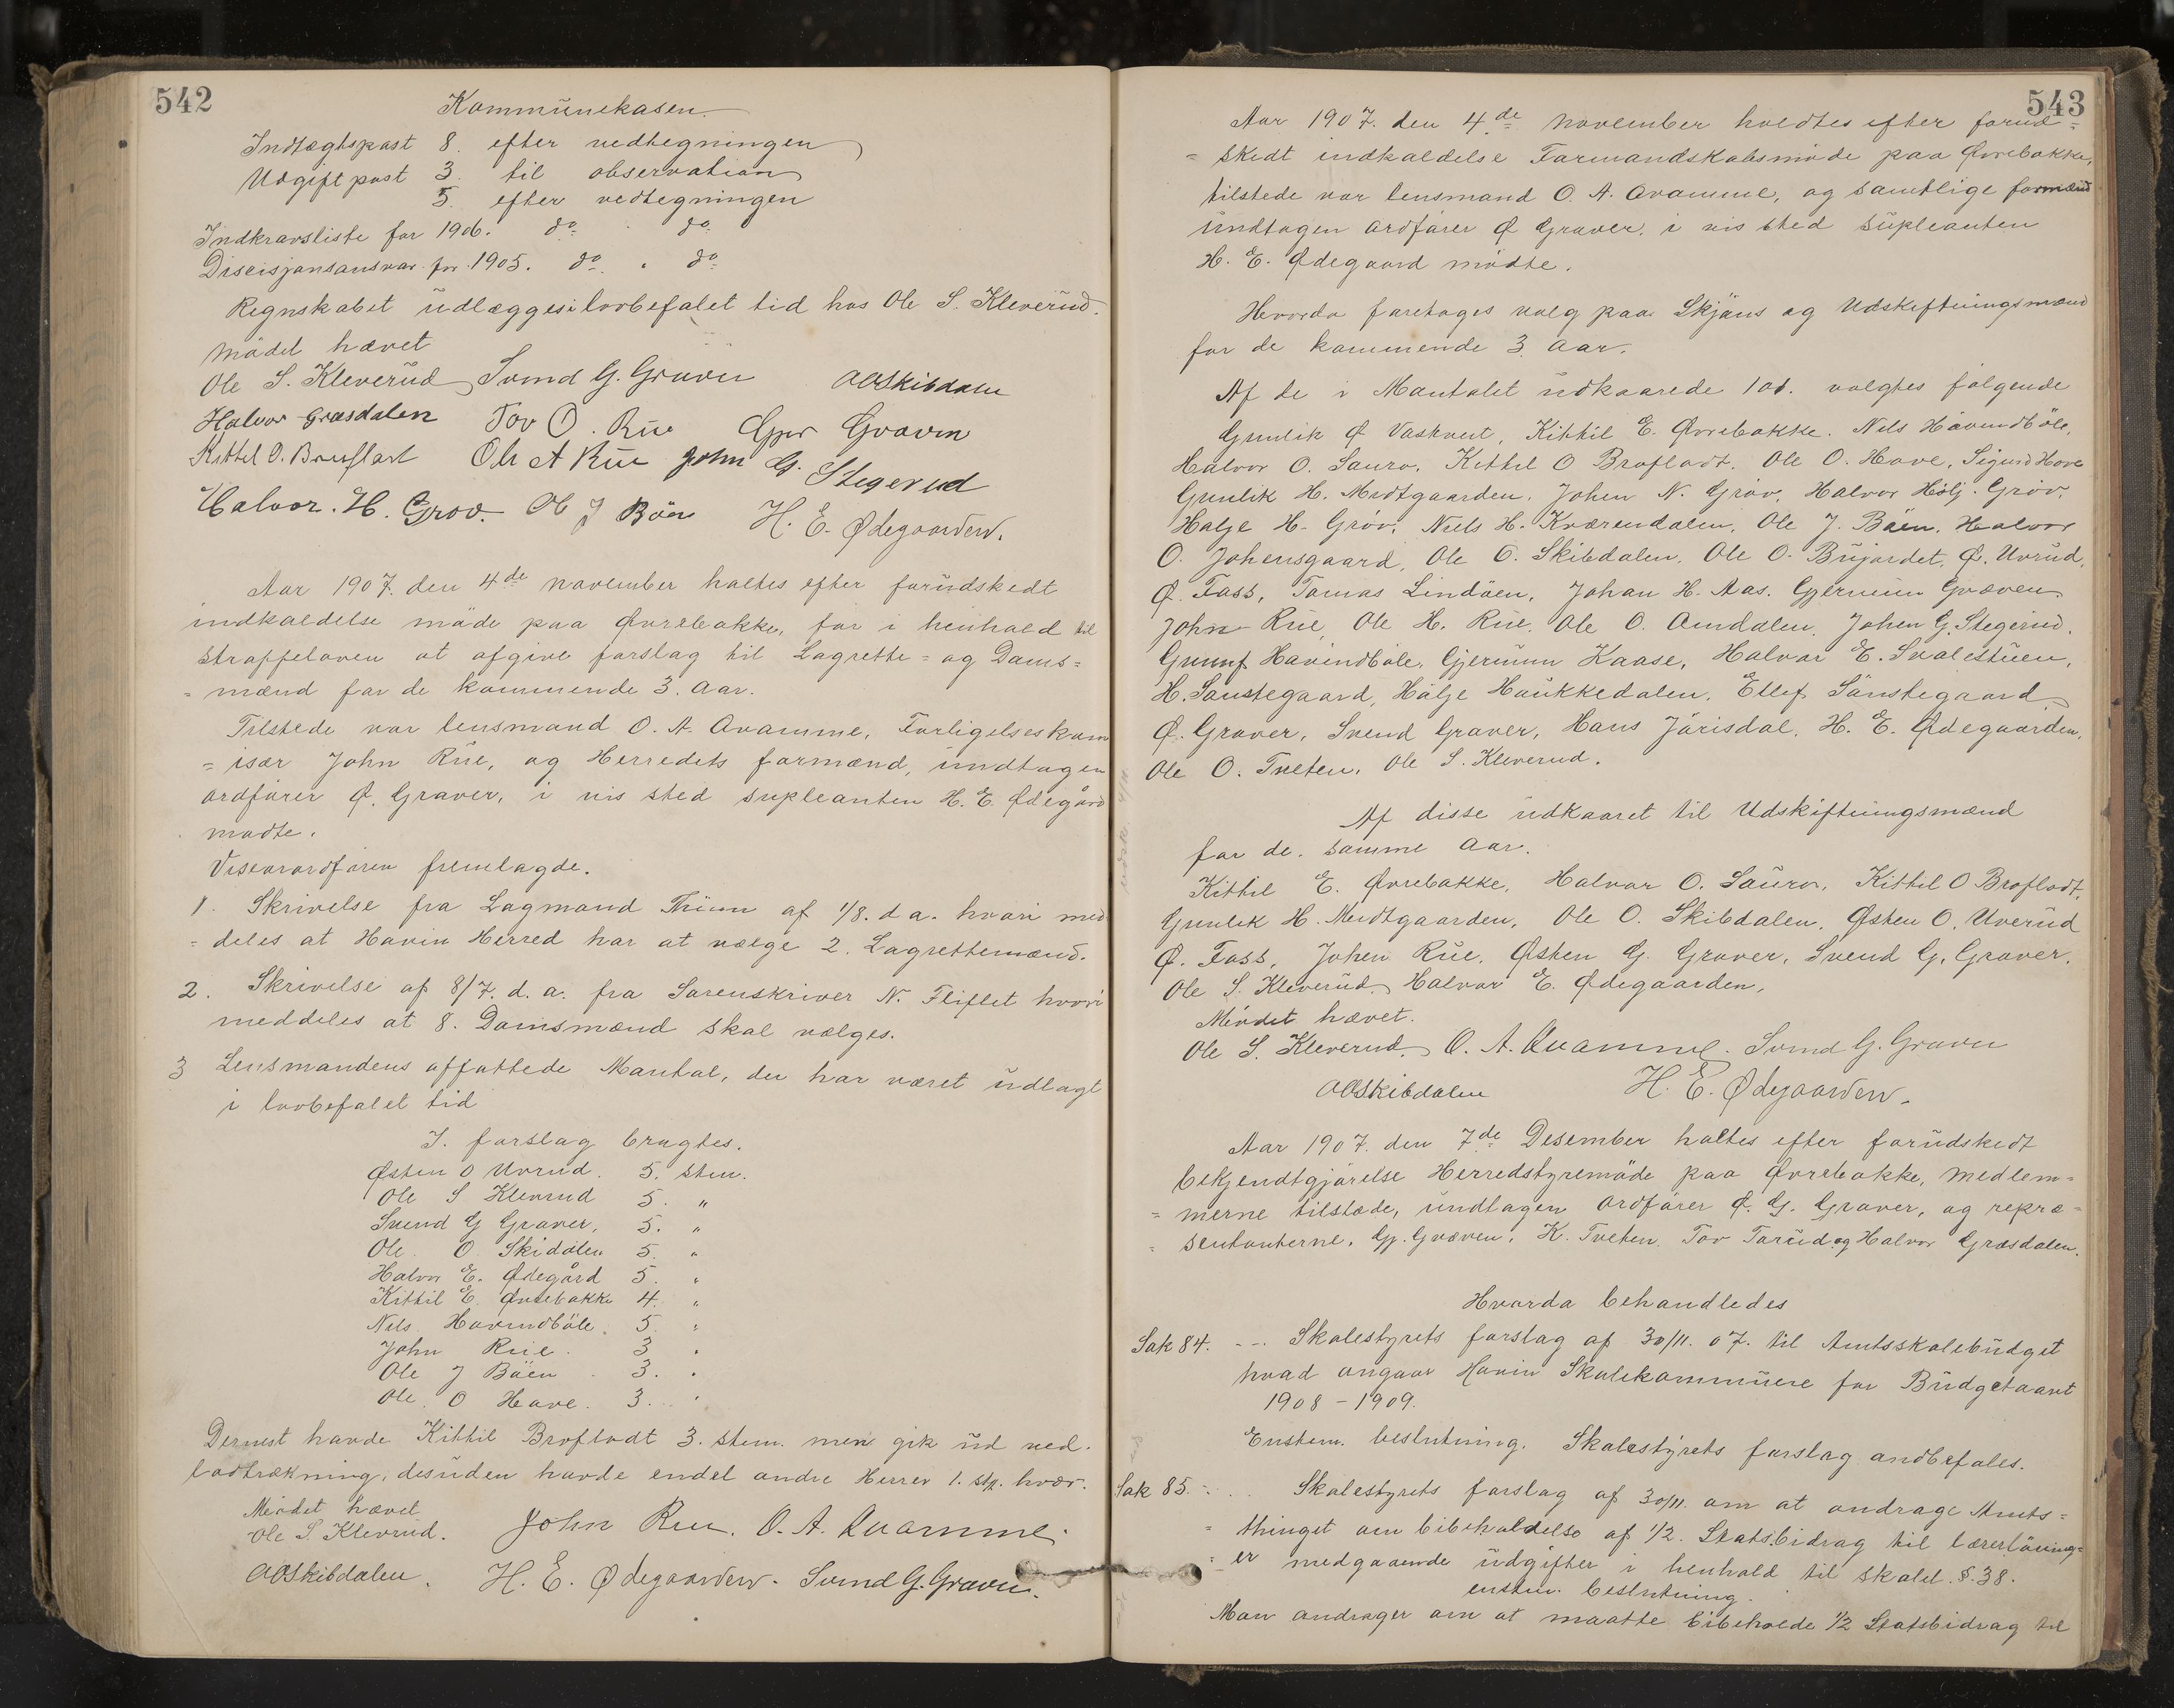 542
Kommunekasen
Indtægtspost 8. efter vedtegningen
Udgiftpost 3. til observation
5. efter vedtegningen
Indkravsliste for 1906. do do
Discisjonsansvar for 1905. do " do
Regnskabet udlægges i lovbefalet tid hos Ole S. Kleverud.
Mødet hævet
Ole S. Kleverud Svend G. Graver OOSkibdalen
Halvor Græsdalen Tov O. Rue Gjer Græven
Kittel O. Brofladt Ole A Rue John G. Stegerud
Halvor. H. Grøv. Ole J Böen H. E. Ødegaarden.
Aar 1907. den 4de november holtes efter forudskedt
indkaldelse møde paa Øvrebakke, for i henhold til
straffeloven at afgive forslag til Lagrette= og Doms=
=mænd for de kommende 3. Aar.
Tilstede var lensmand O. A. Qvamme, Forligelseskom
=især John Rue, og Herredets formænd, undtagen
ordfører Ø. Graver, i vis sted supleanten H. E. Ødegård
mødte.
Viseordføren fremlagde.
1. Skrivelse fra Lagmand Thinn af 1/8. d a. hvori med
=deles at Hovin Herred har at vælge 2. Lagrettemænd.
2. Skrivelse af 8/7. d. a. fra Sorenskriver N. Fliflet hvori
meddeles at 8. Domsmænd skal vælges.
3 Lensmandens affattede Mantal, der har været udlagt
i lovbefalet tid
I. forslag bragtes.
Østen O Uvrud. 5. stem.
Ole S Klevrud 5. "
Svend G Graver, 5. "
Ole O Skidalen 5. "
Halvor E. Ødegård 5. "
Kittil E. Øvrebakke 4. "
Nils Hovindböle. 5. "
John Rue. 3 "
Ole J Böen 3. "
Ole O Hove. 3. "
Dernest havde Kittil Brofladt 3. stem. men gik ud ved.
lodtrækning, desuden havde endel andre Herrer 1. stp. hvær.
Mödet hævet
Ole S Klevrud. John Rue. O. A. Quamme.
OOSkibdalen. H. E. Ødegaarden. Svend G. Graver.
543
Aar 1907. den 4de november holdtes efter forud=
=skedt indkaldelse Formandskabsmöde paa Øvrebakke,
tilstede var lensmand O. A. Qvamme, og samtlige formænd
undtagen ordfører Ø Graver. i vis sted supleanten
H. E. Ødegaard mødte.
Hvorda foretoges valg paa Skjøns og Udskiftningsmænd
for de kommende 3 Aar.
Af de i Mantalet udkaarede 101. valgtes følgende
Gunlik Ø Vashvert, Kittil E. Øvrebakke. Nils Hövindböle,
Halvor O. Sauro, Kittil O Brofladt. Ole O. Hove, Sigurd Hove
Gunlik H. Midtgaarden. Johen N. Gröv. Halvor Hölj. Gröv.
Holje H. Gröv. Niels H. Kværendalen, Ole J. Böen. Halvor
O. Johensgaard, Ole O. Skibdalen. Ole O. Bujordet. Ø. Uvrud.
Ø. Foss, Tomas Lindöen, Johan H. Aas. Gjermun Græven
John Rue, Ole H. Rue. Ole O. Omdalen. Johen G. Stegerud.
Gunnf. Hovindböle, Gjermun Kaase, Halvor E. Svalestuen,
H. Sönstegaard, Hölje Haukkedalen. Ellef Sönstegaard
Ø. Graver, Svend Graver, Hans Jörisdal, H. E. Ødegaarden,
Ole O. Tveten. Ole S. Kleverud.
Af disse udkaaret til Udskiftningsmænd
for de. samme Aar.
Kittil E. Øvrebakke, Halvor O. Sauro, Kittil O Brofladt,
Gunlik H. Midtgaarden, Ole O. Skibdalen. Østen O. Uverud
Ø. Foss, Johen Rue. Østen G. Graver, Svend G. Graver.
Ole S. Kleverud. Halvor E. Ødegaarden.
Mödet hævet.
Ole S. Kleverud. O. A. Quamme. Svend G. Graver
OOSkibdalen H. E. Ødegaarden.
Aar 1907. den 7de Desember holtes efter forudskedt
bekjendtgjörelse Herredstyremöde paa Øvrebakke, medlem=
=merne tilstede, undtagen ordfører Ø. G. Graver, og repræ=
=sentanterne. Gj. Græven, K. Tveten. Tov Torud og Halvor Græsdalen.
Hvorda behandledes
Sak 84. Skolestyrets forslag af 30/11. 07. til Amtsskolebudget
hvad angaar Hovin Skolekommune for Budgetaaret
1908 - 1909.
Enstem. beslutning. Skolestyrets forslag andbefales.
Sak 85. Skolestyrets forslag af 30/11. om at andrage Amts=
=thinget om bibeholdelse af 1/2. Statsbidrag til lærerlöning=
=er medgaaende udgifter i henhold til skolel. §. 38.
enstem. beslutning.
Man andrager om at maatte bibeholde 1/2 Statsbidrag til